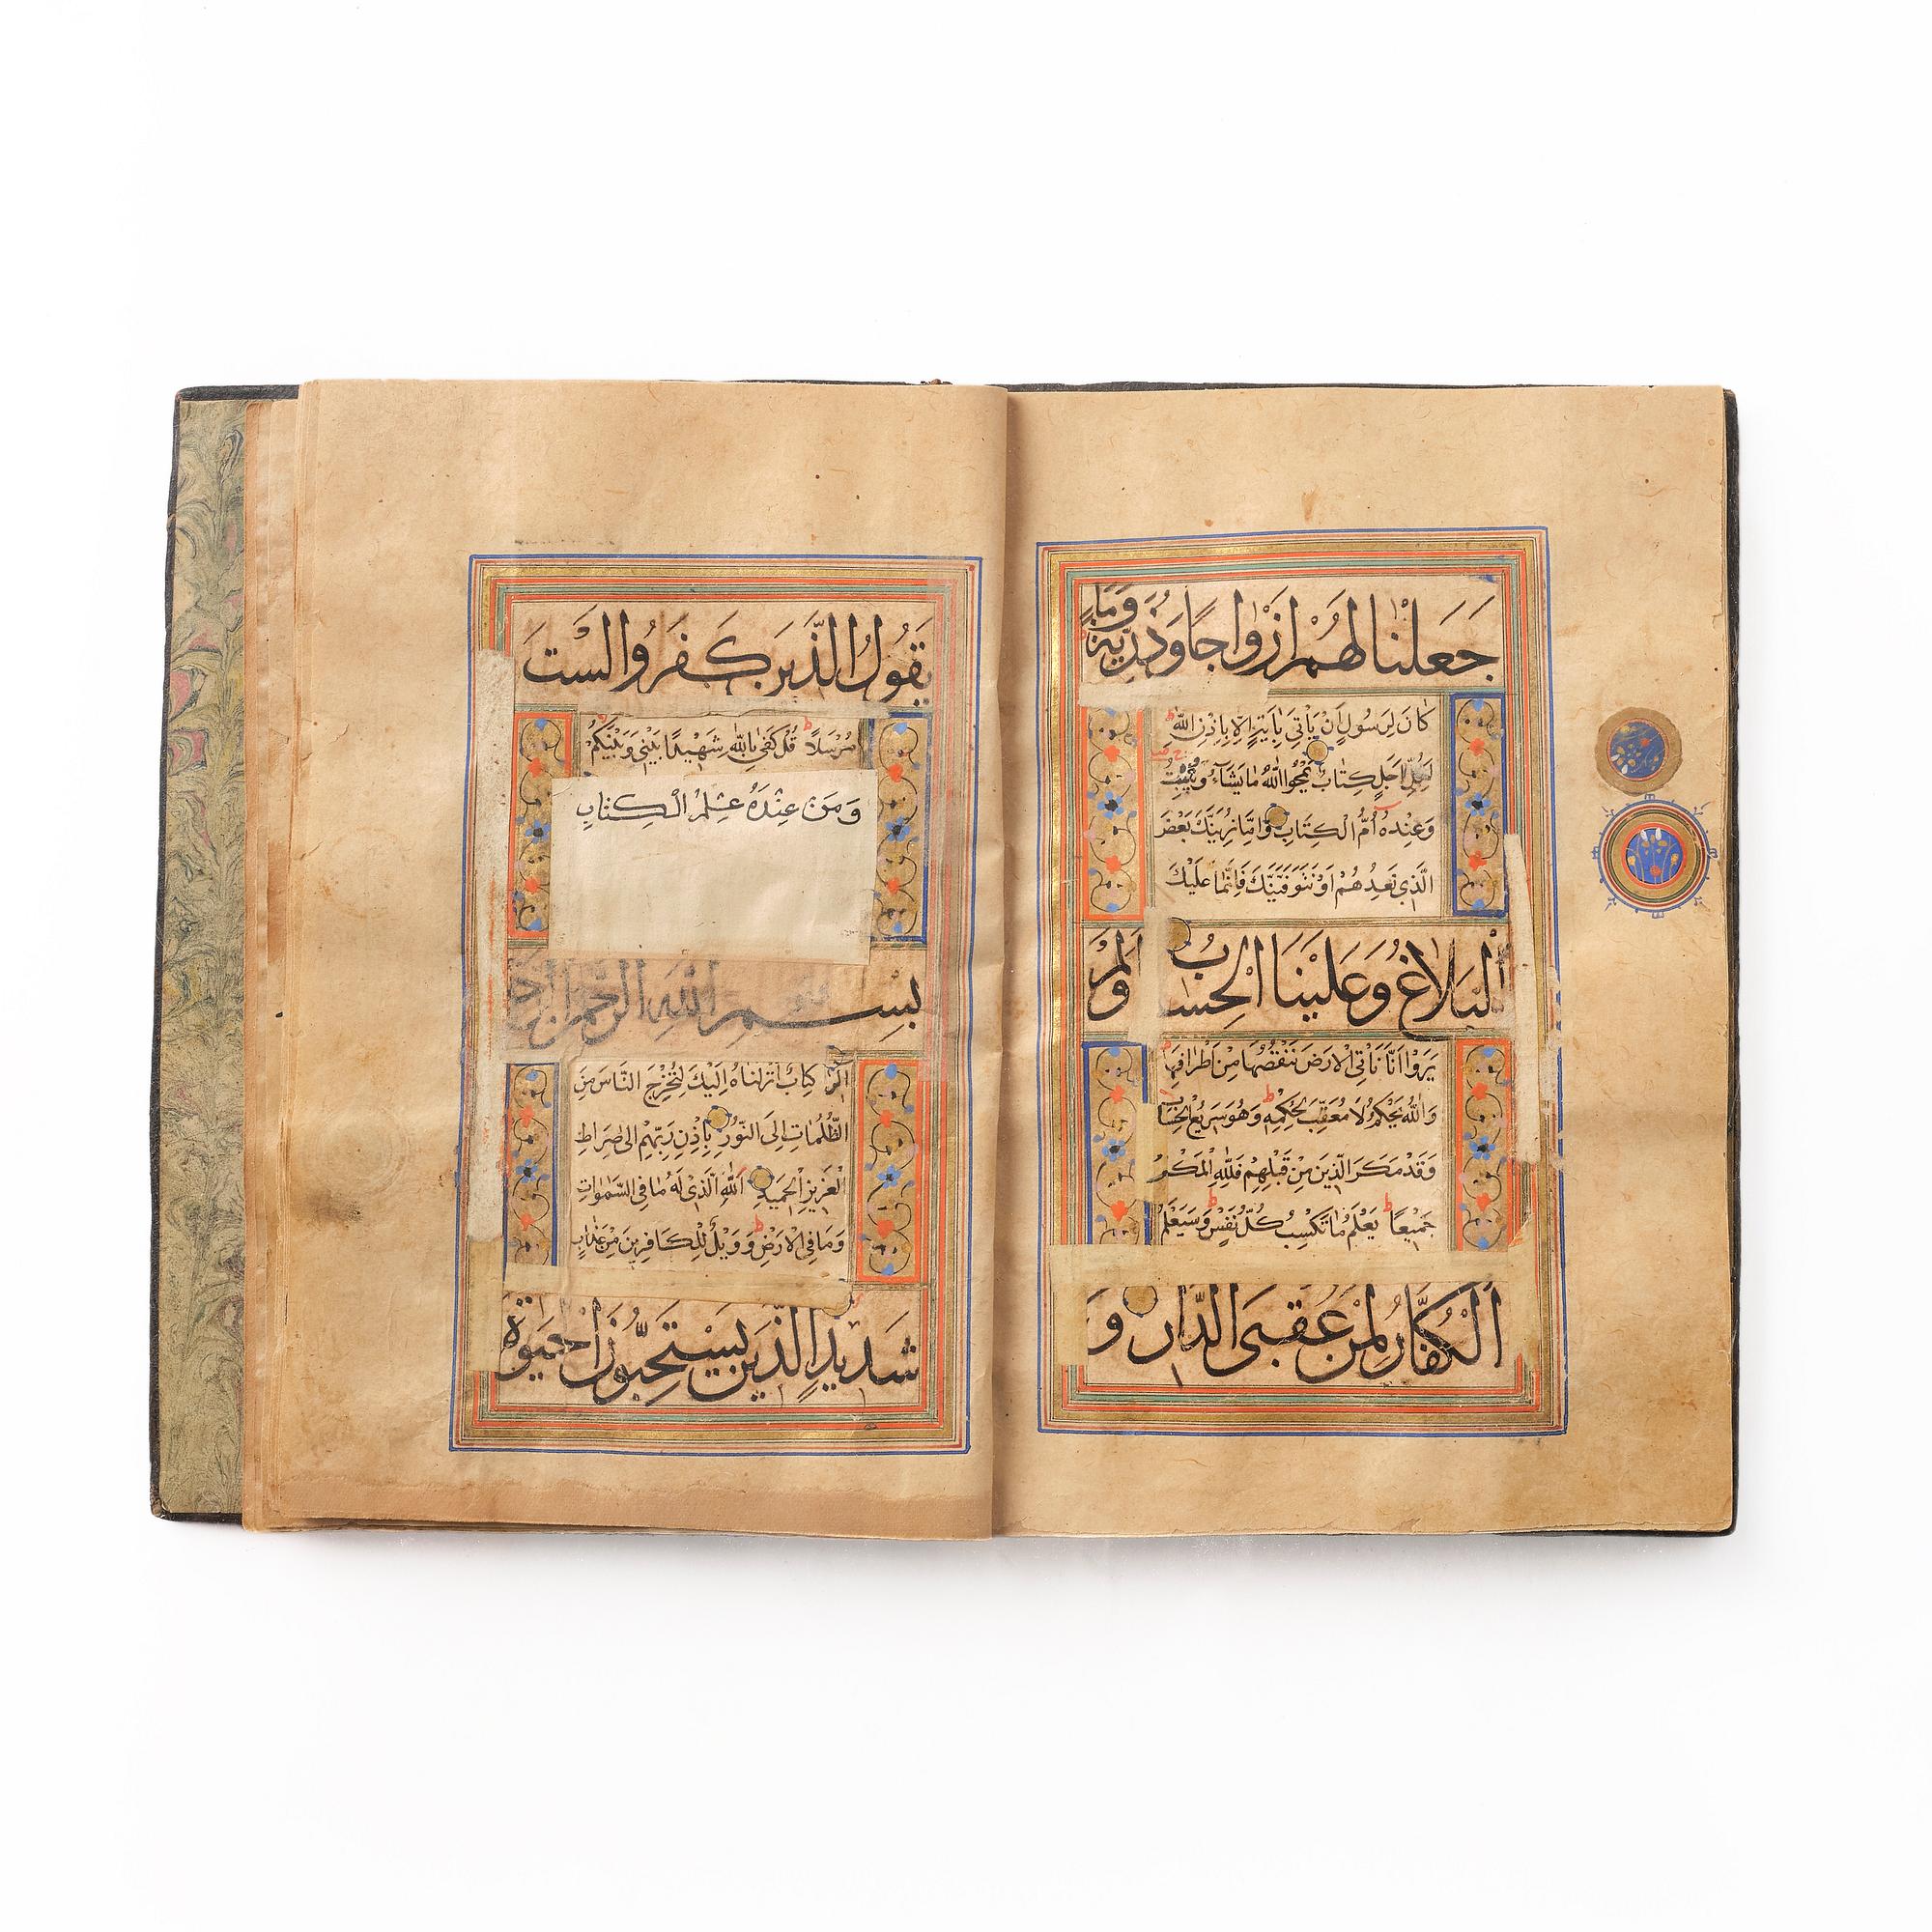 جَعَلْنَا لَهُمْ اَزْوَاجًا وَذُرِّيَّةً وَمَا
كَانَ لِرَسُولٍ اَنْ يَأْتِيَ بِاٰيَةٍ اِلَّا بِاِذْنِ اللّٰهِ
لِكُلِّ اَجَلٍ كِتَابٌ يَمْحُوا اللّٰهُ مَا يَشَآءُ وَيُثْبِتُ
وَعِنْدَهُ اُمُّ الْكِتَابِ وَاِمَّا نُرِيَنَّكَ بَعْضَ
الَّذِي نَعِدُهُمْ اَوْ نَتَوَفَّيَنَّكَ فَاِنَّمَا عَلَيْكَ
الْبَلَاغُ وَعَلَيْنَا الْحِسَابُ اَوَلَمْ
يَرَوْا اَنَّا نَأْتِي الْاَرْضَ نَنْقُصُهَا مِنْ اَطْرَافِهَا
وَاللّٰهُ يَحْكُمُ لَا مُعَقِّبَ لِحُكْمِهِ وَهُوَ سَرِيعُ الْحِسَابِ
وَقَدْ مَكَرَ الَّذِينَ مِنْ قَبْلِهِمْ فَلِلّٰهِ الْمَكْرُ
جَمِيعًا يَعْلَمُ مَا تَكْسِبُ كُلُّ نَفْسٍ وَسَيَعْلَمُ
الْكُفَّارُ لِمَنْ عُقْبَى الدَّارِ وَ
يَقُولُ الَّذِينَ كَفَرُوا لَسْتَ
مُرْسَلًا قُلْ كَفٰى بِاللّٰهِ شَهِيدًا بَيْنِي وَبَيْنَكُمْ
وَمَنْ عِنْدَهُ عِلْمُ الْكِتَابِ
بِسْمِ اللّٰهِ الرَّحْمٰنِ الرَّحِيمِ
الٓرٰ كِتَابٌ اَنْزَلْنَاهُ اِلَيْكَ لِتُخْرِجَ النَّاسَ مِنَ
الظُّلُمَاتِ اِلَى النُّورِ بِاِذْنِ رَبِّهِمْ اِلٰى صِرَاطِ
الْعَزِيزِ الْحَمِيدِ اللّٰهِ الَّذِي لَهُ مَا فِي السَّمٰوَاتِ
وَمَا فِي الْاَرْضِ وَوَيْلٌ لِلْكَافِرِينَ مِنْ عَذَابٍ
شَدِيدٍ الَّذِينَ يَسْتَحِبُّونَ الْحَيٰوةَ